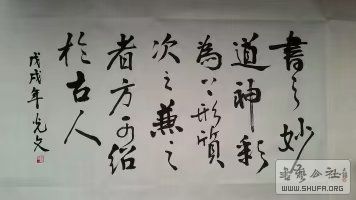 書之妙
道神彩
為上形質
次之兼之
者方可紹
於古人
戊戌年光文
書藝公社
WWW.SHUFA.ORG